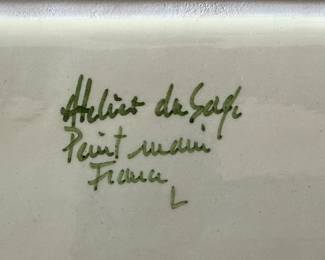 Atelier du Sage
Peint main
France
L